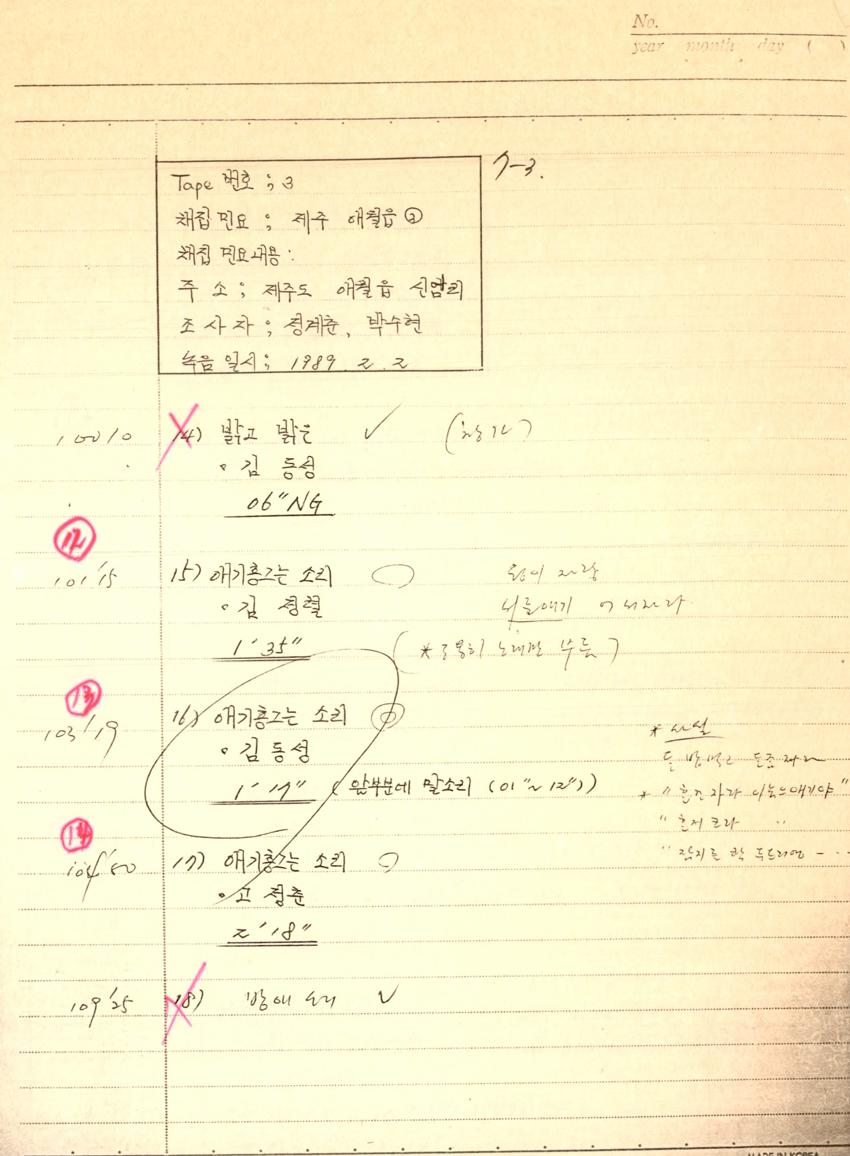 No.
year month day ( )
7-3.
Tape 번호 ; 3
채집 민요 ; 제주 애월읍 ②
채집 민요내용 :
주 소 ; 제주도 애월읍 신엄리
조 사 자 ; 정계춘, 박수현
녹음 일시 ; 1989. 2. 2
100'10 14) 밝고 밝은 ✓ (창가)
• 김 동성
06" NG
12
101'15 15) 애기흥그는 소리 ○ 왕이 자랑
• 김 정렬 너를애기
1' 35" ( * 조용히 노래만 부름 )
13
103'19 16) 애기흥그는 소리 ◎ * 사설
• 김 동성
1' 17" ( 앞부분에 말소리 (01"~12"))
14
104'50 17) 애기흥그는 소리 ○ " 혼저
• 고 정춘
2' 18"
109'25 18) 방애 소리 ✓
MADE IN KOREA